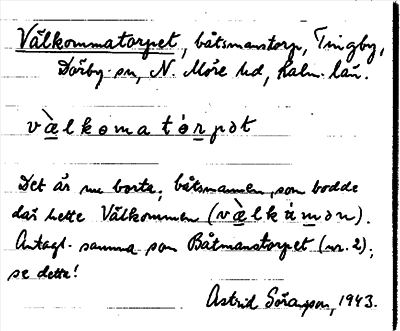 Välkommatorpet, båtsmanstorp, Tingby,
Dörby sn, N. Möre hd, Kalm. län.
væ̀lkomatórpət
Det är nu borta; båtsmannen, som bodde
där hette Välkommen (væ̀lkåmən).
Antagl. samma som Båtmanstorpet (nr. 2);
se detta!
Astrid Göransson, 1943.